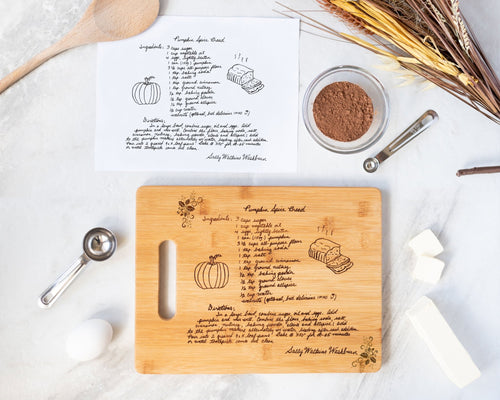 Pumpkin Spice Bread
Ingredients: 3 cups sugar
1 cup vegetable oil
4 eggs, lightly beaten
1 can (16oz) pumpkin
3 ½ cups all-purpose flour
1 tsp. baking soda
1 tsp. salt
1 tsp. ground cinnamon
1 tsp. ground nutmeg
½ tsp. baking powder
½ tsp. ground cloves
½ tsp. ground allspice
½ cup water
walnuts (optional, but delicious
Directions:
In a large bowl, combine sugar, oil and eggs. Add
pumpkin and mix well. Combine the flour, baking soda, salt,
cinnamon, nutmeg, baking powder, cloves and allspice; add to
pumpkin mixture alternately with water,
Pour into 2 greased 9x5 loaf pans. Bake @ 350° for 60-65 minutes
or until toothpick comes out clean.
Sally Watkins Washburn
Pumpkin Spice Bread
Ingredients: 3 cups sugar
1 cup vegetable oil
4 eggs, lightly beaten
1 can (16oz) pumpkin
3 ½ cups all-purpose flour
1 tsp. baking soda
1 tsp. salt
1 tsp. ground cinnamon
1 tsp. ground nutmeg
1 tsp. baking powder
½ tsp. ground cloves
½ tsp. ground allspice
½ cup water
walnuts (optional, but delicious
Directions:
In a large bowl, combine sugar, oil and eggs. Add
pumpkin and mix well. Combine the flour, baking soda, salt,
cinnamon, nutmeg, baking powder, cloves and allspice; add to
pumpkin mixture alternately with water,
Pour into 2 greased 9x5 loaf pans. Bake @ 350° for 60-65 minutes
or until toothpick comes out clean.
Sally Watkins Washburn